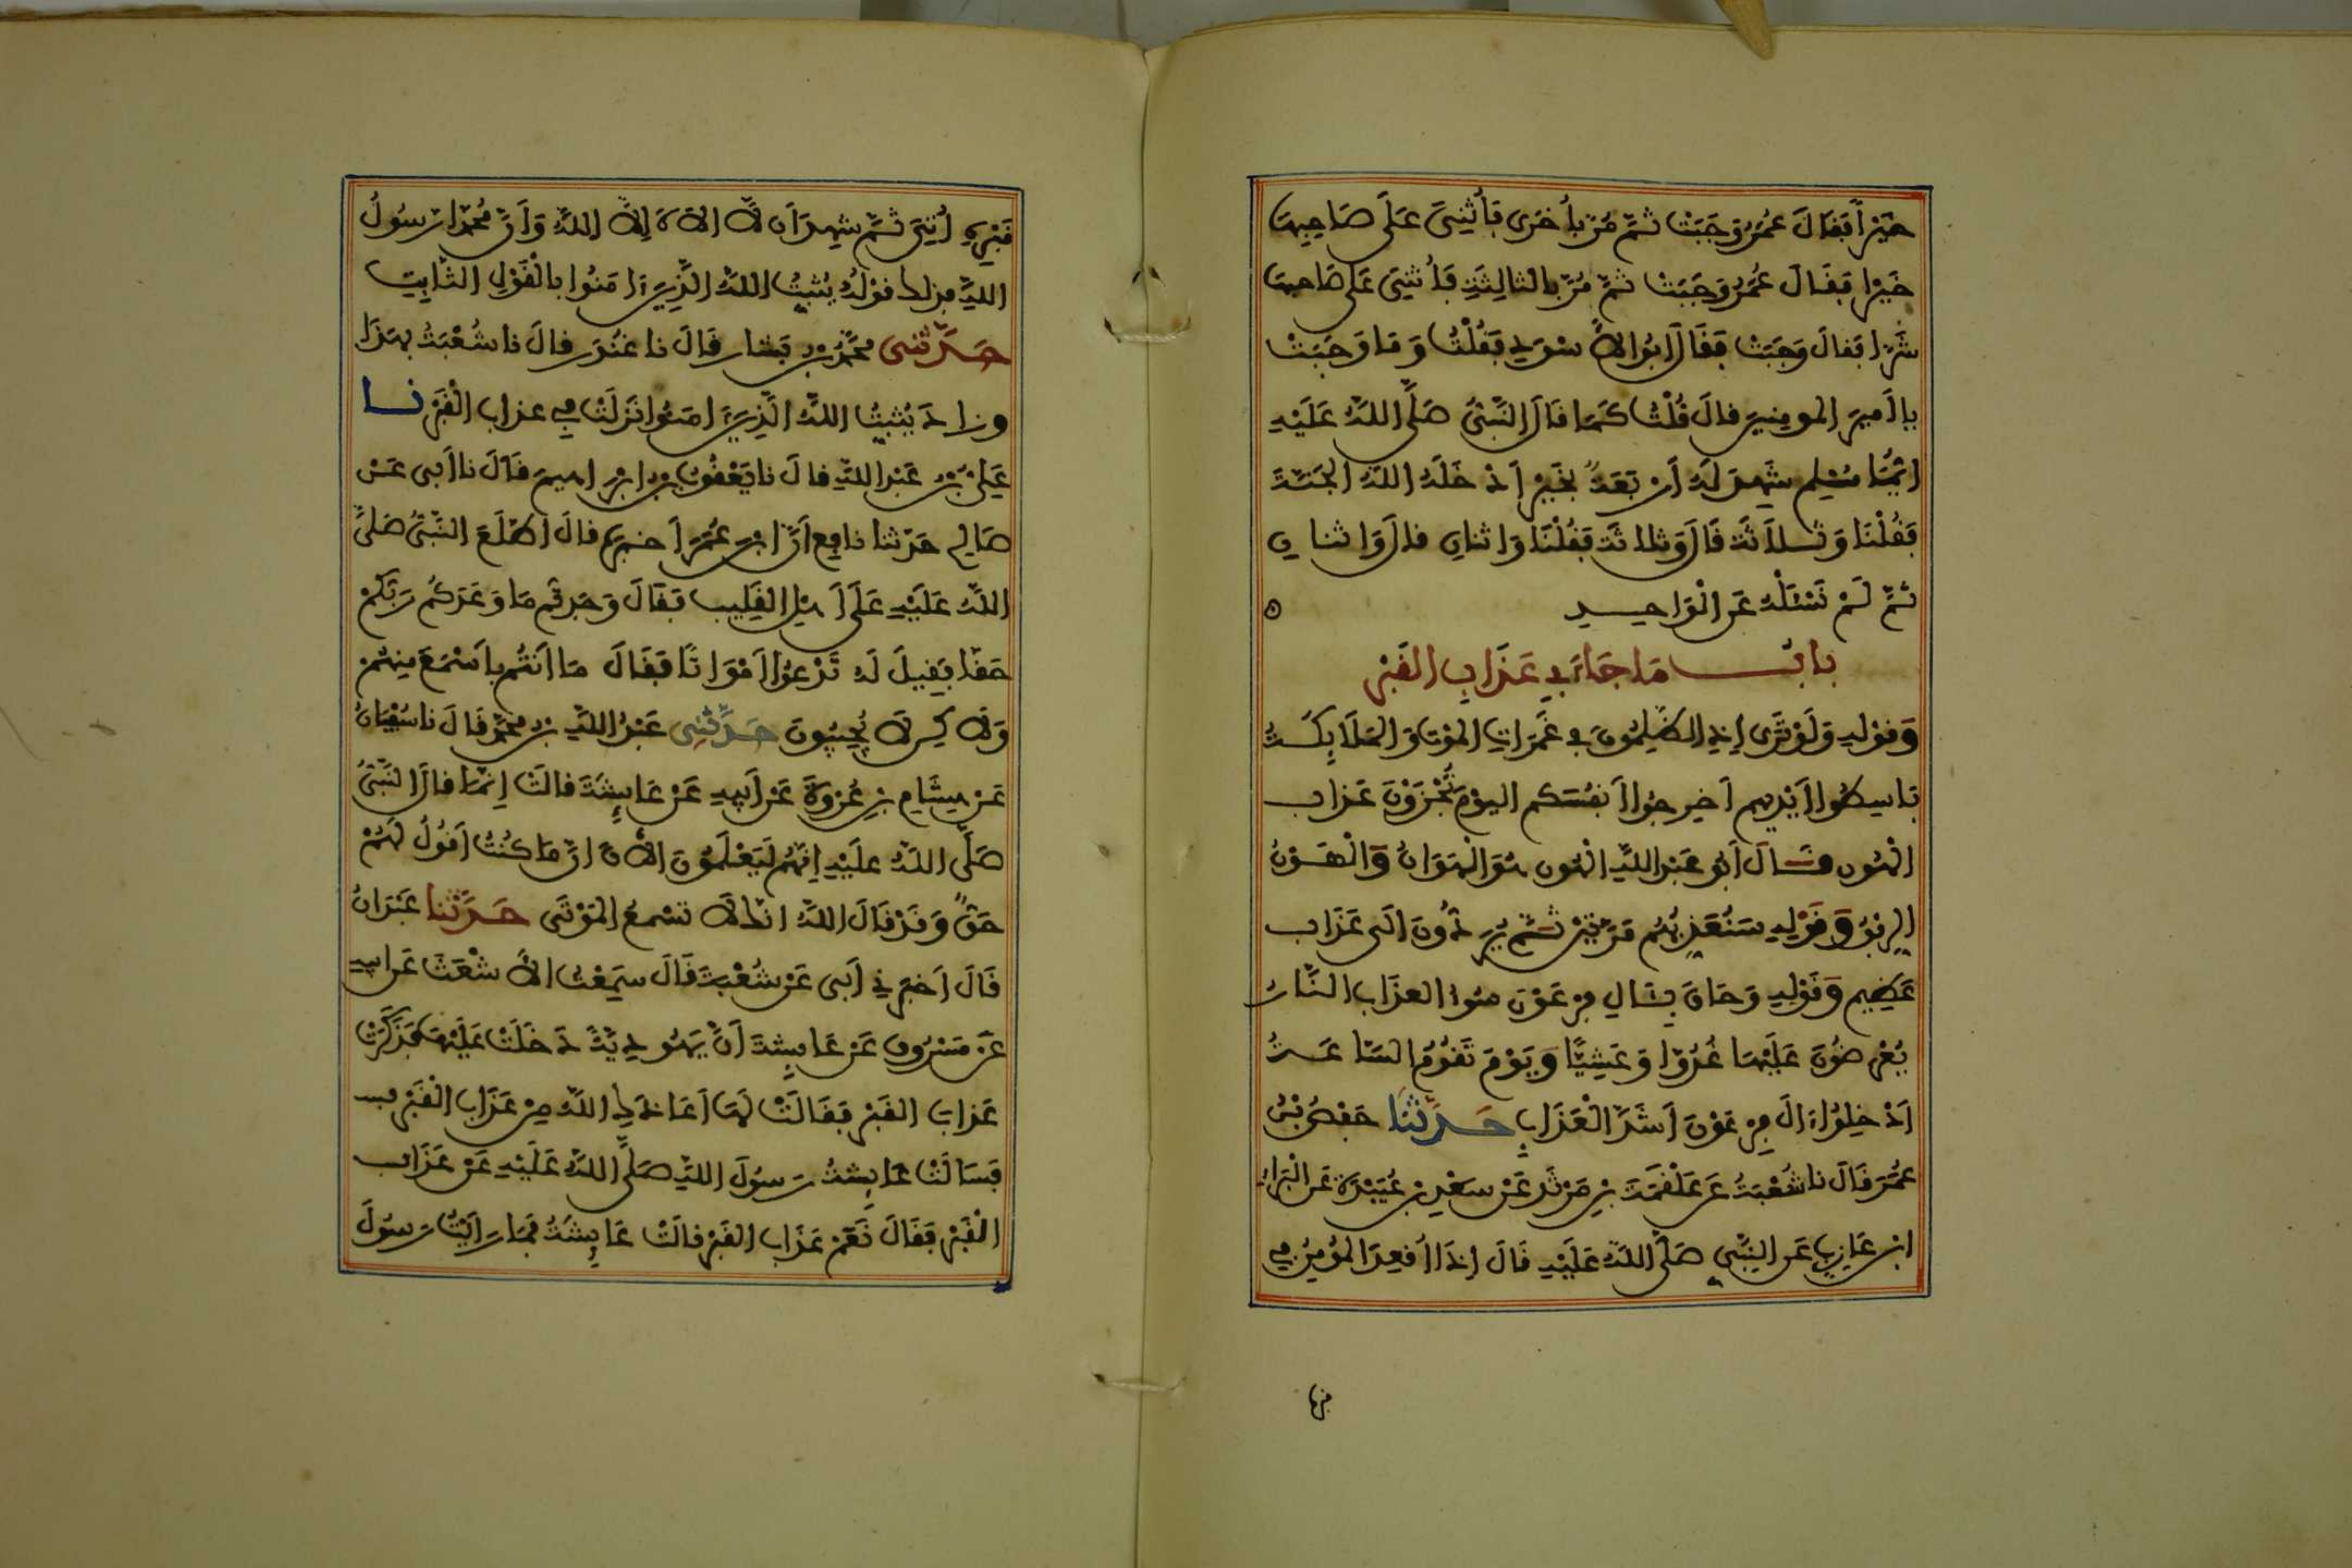 خَيْراً فَقَالَ عُمَرُ وَجَبَتْ ثمَّ مُرَّ بأُخرَى فأُثْنِىَ عَلَى صَاحِبِهَا
خَيْرا فَقَالَ عُمَرُ وَجَبَتْ ثمَّ مُرَّ بالثالِثَةِ فَأُثنِىَ عَلَى صَاحبهَا
شَرّا فقالَ وَجَبَتْ فَقَالَ أبُو الاسْوَدِ فَقُلْتُ وَمَا وَجَبَتْ
يا أَمِيرَ المومِنِينَ قالَ قُلْتُ كَمَا قَالَ النَّبِىُّ صَلَّى اللهُ عَلَيْهِ
ايُّمَا مُسْلِمٍ شَهِدَ لَهُ أَرْبَعَةٌ بخَيْرٍ اَدْخَلَهُ اللهُ الجَنَّةَ
فَقُلْنَا وَثَلاَثَةٌ قَالَ وَثلاثَةٌ فَقُلْنَا وَاثنانِ قالَ وَاثنانِ
ثمَّ لَمْ نَسْئَلْهُ عَنِ الْوَاحِدِ
بابُ مَا جَاءَ فِى عَذَابِ القَبْرِ
وَقوْلِهِ وَلَوْ تَرَى إذِ الظَّلِمُونَ فِى غَمَرَاتِ المَوْتِ وَالمَلَايِكَةُ
بَاسِطُوا أَيْدِيهِم أَخْرِجُوا أَنفُسَكم اليوْمَ تُجْزَوْنَ عَذابَ
الْهُونِ قَالَ أَبُو عَبْدِ اللهِ الْهُون هُوَ الْهَوَانُ وَالْهَوْنُ
الرِفْقُ وَقَوْلِهِ سَنُعَذِّبُهُم مَرَّتَيْنِ ثمَّ يُرَدُّونَ الَى عَذَابٍ
عَظِيم وَقَوْلِهِ وَحَاقَ بِئَالِ فِرْعَوْنَ سُوءُ العذَابِ النَّارُ
يُعْرَضُونَ عَلَيْهَا غُدُوّا وَعَشِيًّا وَيَوْمَ تَقُومُ السَّاعَةُ
اَدْخِلُوا ءالَ فِرْعَوْنَ اَشَدَّ الْعَذَابِ حَدَّثَنَا حَفْصُ بْنُ
عُمَرَ قَالَ نا شُعْبَةُ عَن عَلْقَمَةَ بْنِ مَرْثَدٍ عَنْ سَعْدِ بْنِ عُبَيْدَةَ عَن الْبَرَاءِ
ابْنِ عَازِبٍ عَنِ النَّبِىّ صَلَّى اللهُ عَلَيْهِ قَالَ إِذَا أُقعِدَ المُؤمِنُ فِى
قَبْرِهِ أُتِىَ ثمَّ شهِدَ اَن لَّا الاهَ إِلاَّ اللهُ وَأَنَّ مُحَمَّدا رَسُولُ
اللهِ فذلكَ قوْلُهُ يُثبِّتُ اللهُ الَّذِينَ ءامَنُوا بِالْقَوْلِ الثَّابِتِ
حَدَّثَنِى مُحَمَّدُ بْن بَشّار قَالَ نا غُنْدَر قالَ نا شُعْبَةُ بهَذَا
وزادَ يُثَبِّتُ اللهُ الَّذِينَ ءامَنُوا نَزَلَتْ فِى عذابِ الْقَبْرِ نا
عَلِىّ بْن عَبْدِ اللهِ قالَ نا يَعْقُوبُ بْن إبْرَاهيمَ قَالَ نا أَبى عَنْ
صَالِحٍ حَدّثنا نافِع أَنَّ ابْنَ عُمَرَ أخبرَهُ قالَ اطّلَعَ النَّبِىُّ صَلَّى
اللهُ عَلَيْهِ عَلَى أَهْلِ القَلِيبِ فَقَالَ وَجَدتُّم مَا وَعَدَكُم رَبُّكُمْ
حَقّا فَقِيلَ لَهُ تَدْعُوا أَمْوَاتًا فَقَالَ مَا اَنتُم بِاَسْمَعَ مِنهُمْ
وَلَاكِن لاَ يُجِيبُونَ حَدَّثَنِى عَبْدُ اللهِ بْن مُحَمَّد قَالَ نا سُفْيَانُ
عَنْ هِشَامِ بْنِ عُرْوَةَ عَنْ أَبِيهِ عَنْ عَايِشَةَ قالَتْ إنَّمَا قالَ النَّبِىُّ
صَلَّى اللهُ عَلَيْهِ إِنَّهُم لَيَعْلَمُونَ الانَ انَّ مَا كُنْتُ أَقُولُ لَهُمْ
حَقٌّ وَقَدْ قَالَ اللهُ انكَ لاَ تسْمِعُ المَوْتَى حَدَّثَنا عَبْدَانُ
قَالَ أَخبَرَنِى أَبى عَنْ شُعْبَةَ قَالَ سَمِعْتُ الاَشْعَثَ عَن أبِيهِ
عَنْ مَسْرُوقٍ عَنْ عَايِشَةَ أَنَّ يَهُودِيَّةً دَخَلَتْ عَلَيْهَا فَذَكَرَتْ
عَذابَ القَبْرِ فَقَالَتْ لَهَا أَعَاذَكِ اللهُ مِنْ عَذَابِ الْقَبْرِ
فَسَأَلَتْ عَايِشَةُ رَسُولَ اللهِ صَلَّى اللهُ عَلَيْهِ عَنْ عَذَابِ
الْقَبْرِ فَقَالَ نَعَمْ عَذَابُ القَبْرِ قالَتْ عَايِشَةُ فَمَا رَأَيْتُ رَسُولَ